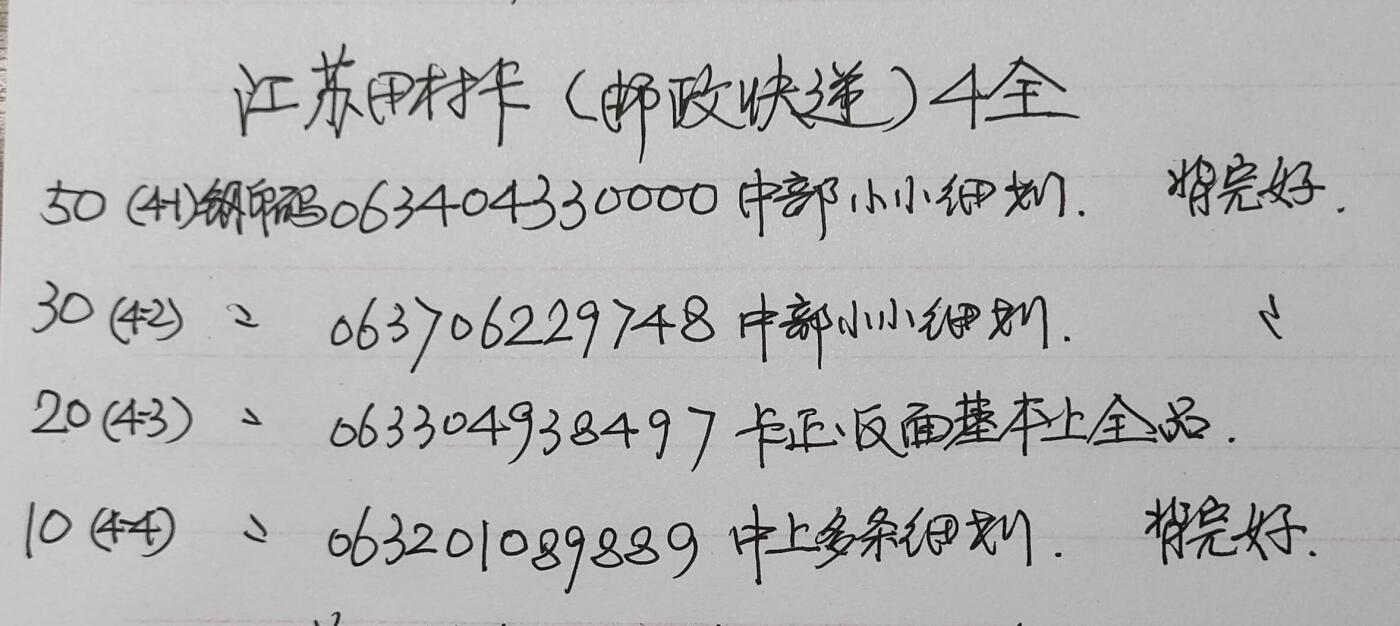 江苏田村卡（邮政快递）4全
50 (4-1) 钢印码 063404330000 中部小小细划. 背完好.
30 (4-2) 〃 063706229748 中部小小细划. 〃
20 (4-3) 〃 063304938497 卡正、反面基本上全品.
10 (4-4) 〃 063201089889 中上多条细划. 背完好.